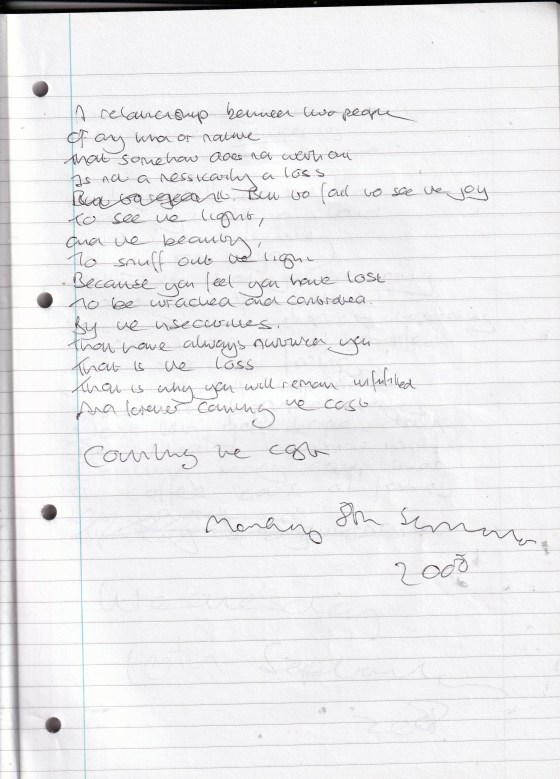 A relationship between two people
Of any kind or nature
That somehow does not work out
Is not a nessicarily a loss
But to fail to see the joy
To see the light,
and the beauty,
To snuff out the light
Because you feel you have lost
To be wracked and controlled
By the insecurities.
That have always nurtured you
That is the loss
That is why you will remain unfulfilled
And forever counting the cost
Counting the cost
Monday 8th September
2008